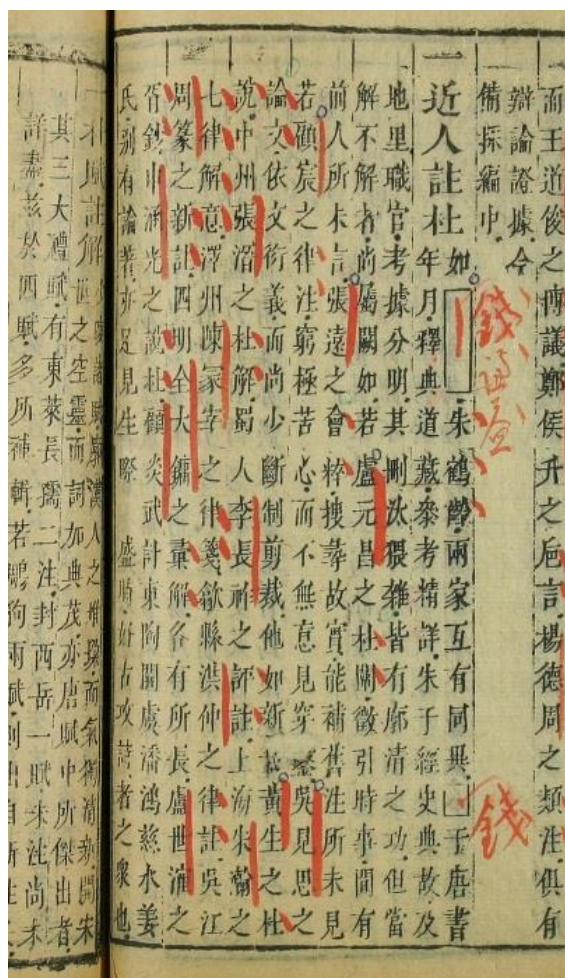 而王道俊之博議鄭侯升之巵言楊德周之類注俱有
辯論證據今
備採編中
錢謙益
錢
一近人註杜如朱鶴齡兩家互有同異于唐書
年月釋典道藏參考精詳朱子經史典故及
地里職官考據分明其刪汰猥雜皆有廓清之功但當
解不解者尚屬闕如若盧元昌之杜闡徵引時事間有
前人所未言張遠之會稡搜尋故實能補舊注所未見
若顧宸之律注窮極苦心而不無意見穿鑿吳見思之
論文依文衍義而尚少斷制剪裁他如新安黃生之杜
說中州張溍之杜解蜀人李長祚之評註上海朱瀚之
七律解意澤州陳冡宰之律箋歙縣洪仲之律註吳江
周篆之新註四明全大鏞之彙解各有所長盧世㴶之
胥鈔申涵光之說杜顧炎武計東陶開虞潘鴻慈水姜
氏別有論著亦足見生際盛時好古攻詩者之衆也
一杜賦註解少陵諸賦廓漢人之堆垛而氣獨清新開宋
世之空靈而詞加典茂亦唐賦中所傑出者
其三大禮賦有東萊長孺二注封西岳一賦朱注尚未
詳盡茲於四賦多所補輯若鵰狗兩賦則出自新注